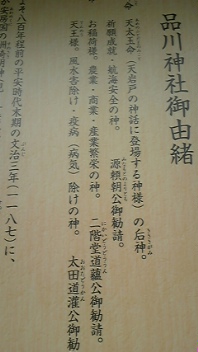 品川神社御由緒
天太玉命(天岩戸の神話に登場する神様)の后神。
祈願成就・航海安全の神。 源頼朝公御勧請。
お稲荷様。農業・商業・産業繁栄の神。 二階堂道蘊公御勧請。
天王様。風水害除け・疫病(病気)除けの神。 太田道灌公御勧
よそ八百年程前の平安時代末期の文治三年(一一八七)に、